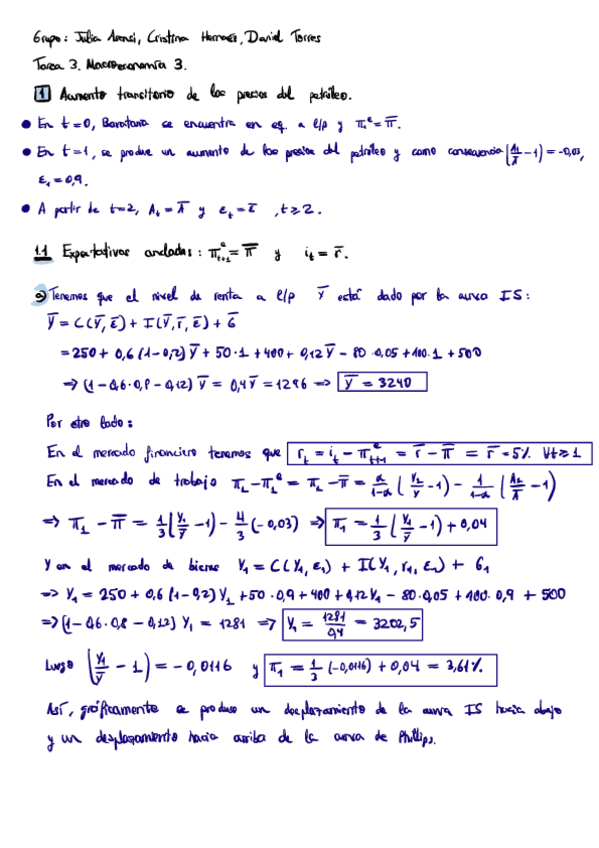 Grupo: Julia Arensi, Cristina Hernáez, Daniel Torres
Tarea 3. Macroeconomía 3.
1 Aumento transitorio de los precios del petróleo.
• En t=0, Baratania se encuentra en eq. a l/p y π₁ᵉ = π̄.
• En t=1, se produce un aumento de los precios del petróleo y como consecuencia (A₁/Ā − 1) = −0,03,
ε₁ = 0,9.
• A partir de t=2, Aₜ = Ā y εₜ = ε̄, t ≥ 2.
1.1 Expectativas ancladas: πᵉₜ₊₁ = π̄ y iₜ = r̄.
a) Tenemos que el nivel de renta a l/p Ȳ está dado por la curva IS:
Ȳ = C(Ȳ, ε̄) + I(Ȳ, r̄, ε̄) + Ḡ
= 250 + 0,6 (1−0,2) Ȳ + 50·1 + 400 + 0,12 Ȳ − 80·0,05 + 100·1 + 500
⇒ (1 − 0,6·0,8 − 0,12) Ȳ = 0,4 Ȳ = 1296 ⇒ Ȳ = 3240
Por otro lado:
En el mercado financiero tenemos que rₜ = iₜ − πᵉₜ₊₁ = r̄ − π̄ = r̄ = 5% ∀t ≥ 1
En el mercado de trabajo π₁ − π₁ᵉ = π₁ − π̄ = α/(1−α) (Y₁/Ȳ − 1) − 1/(1−α) (A₁/Ā − 1)
⇒ π₁ − π̄ = 1/3 (Y₁/Ȳ − 1) − 4/3 (−0,03) ⇒ π₁ = 1/3 (Y₁/Ȳ − 1) + 0,04
Y en el mercado de bienes Y₁ = C(Y₁, ε₁) + I(Y₁, r₁, ε₁) + G₁
⇒ Y₁ = 250 + 0,6 (1−0,2) Y₁ + 50·0,9 + 400 + 0,12 Y₁ − 80·0,05 + 100·0,9 + 500
⇒ (1 − 0,6·0,8 − 0,12) Y₁ = 1281 ⇒ Y₁ = 1281/0,4 = 3202,5
Luego (Y₁/Ȳ − 1) = −0,0116 y π₁ = 1/3 (−0,0116) + 0,04 = 3,61%.
Así, gráficamente se produce un desplazamiento de la curva IS hacia abajo
y un desplazamiento hacia arriba de la curva de Phillips.